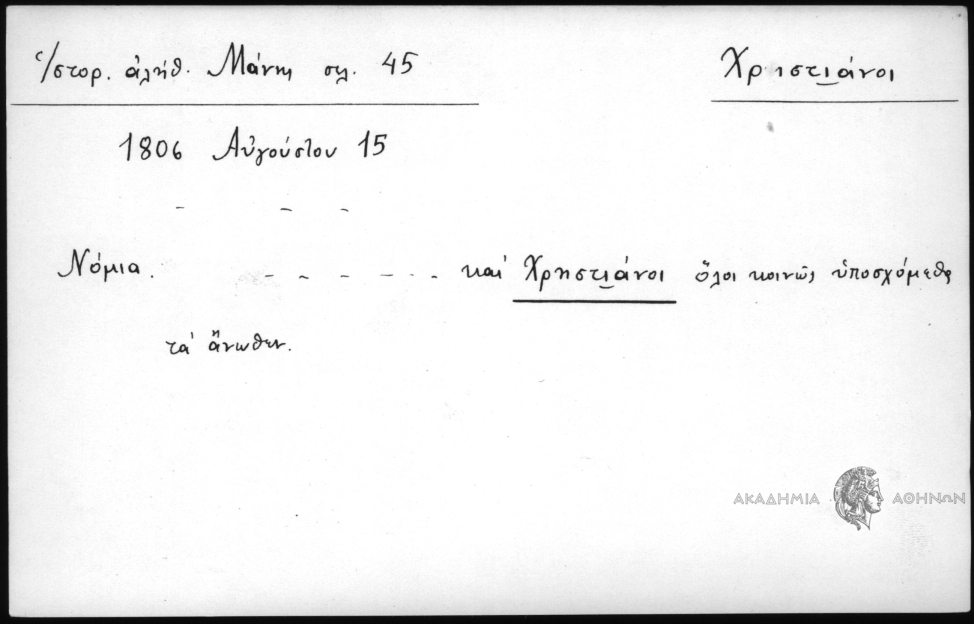 Ἱστορ. ἀλήθ. Μάνης σελ. 45
Χρηστιάνοι
1806 Αὐγούστου 15
- - -
Νόμια. - - - - - - καί Χρηστιάνοι ὅλοι κοινῶς ὑποσχόμεθα
τά ἄνωθεν.
ΑΚΑΔΗΜΙΑ ΑΘΗΝΩΝ